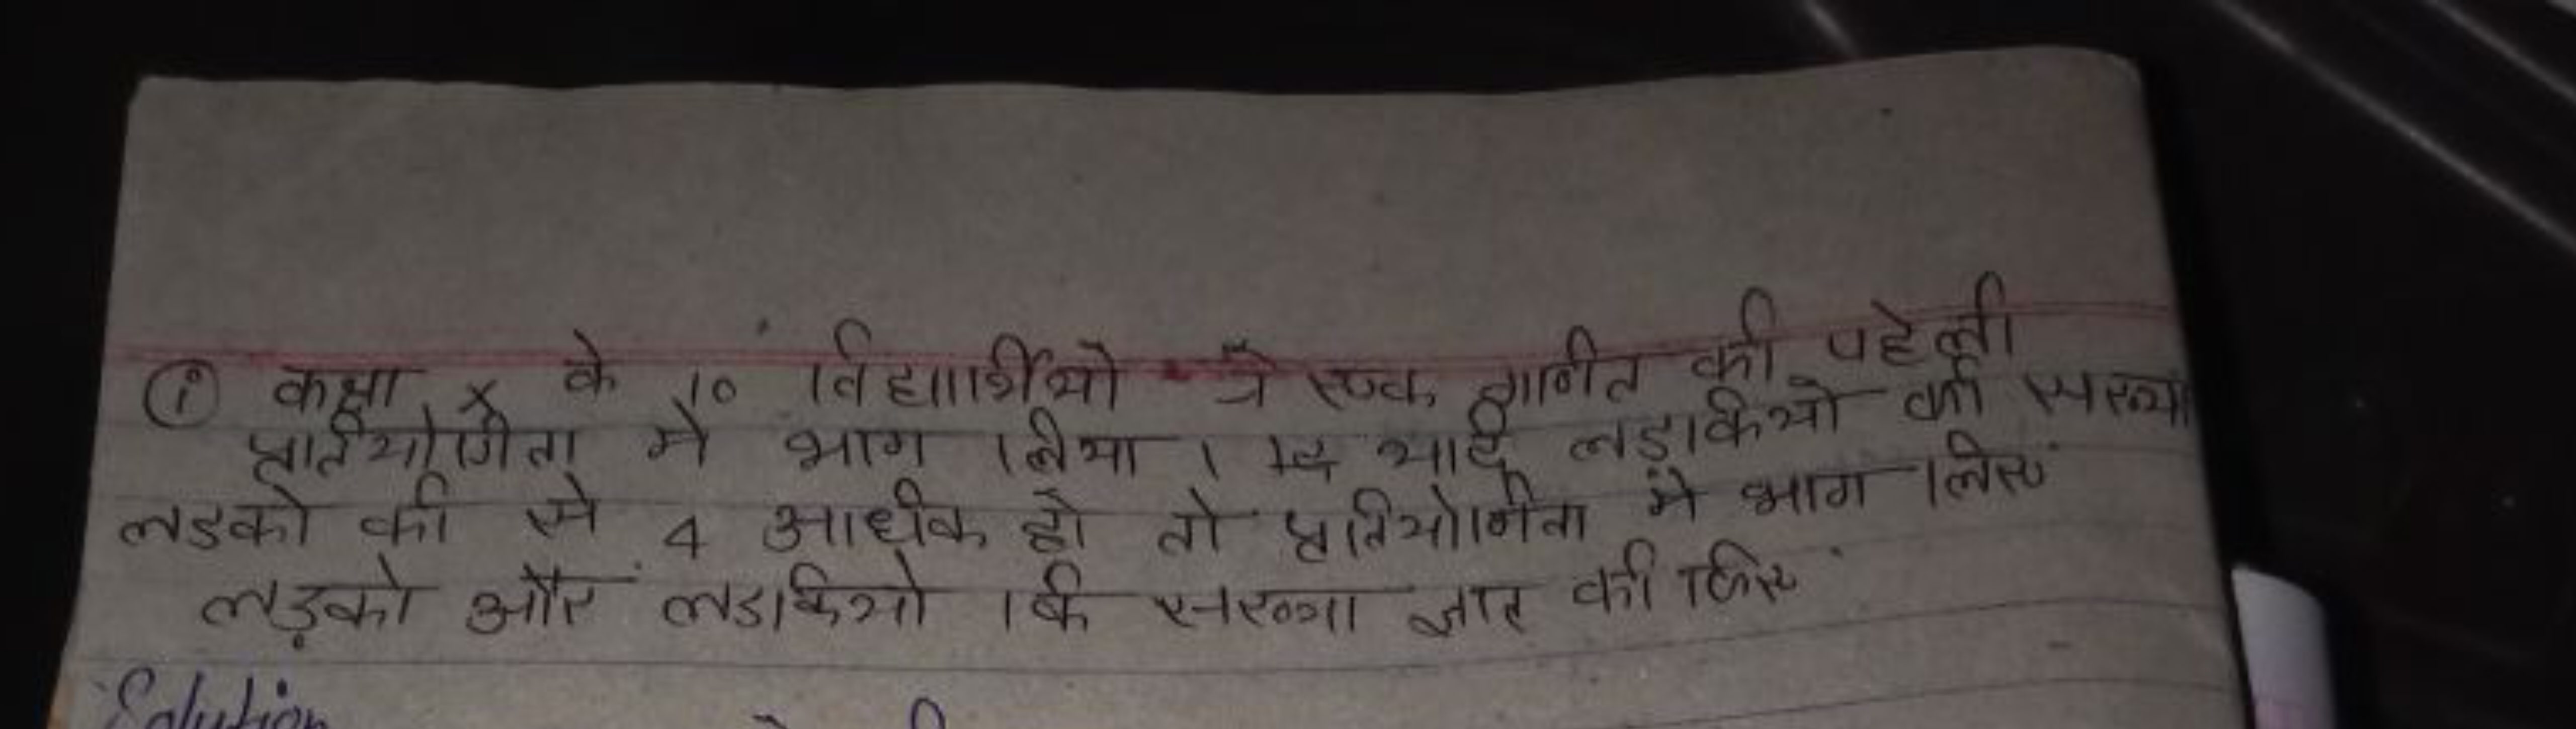 (i) कक्षा x के 10 विद्यार्थीयो ने एक गणित की पहेली
प्रतियोगिता मे भाग लिया । यदि लड़कियो की संख्या
लडको की से 4 अधिक हो तो प्रतियोगिता में भाग लिए
लड़को और लडकियो कि संख्या ज्ञात कीजिए
Solution